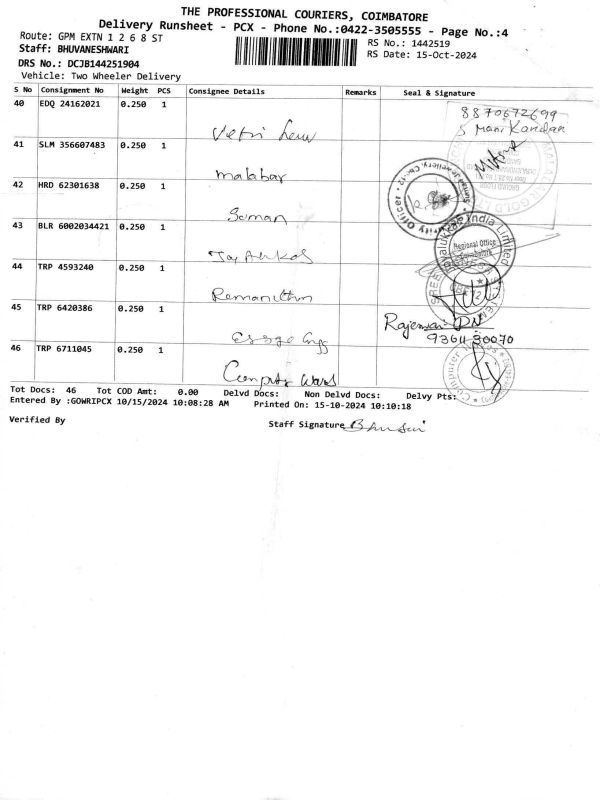 THE PROFESSIONAL COURIERS, COIMBATORE
Delivery Runsheet - PCX - Phone No.:0422-3505555 - Page No.:4
Route: GPM EXTN 1 2 6 8 ST
RS No.: 1442519
Staff: BHUVANESHWARI
RS Date: 15-Oct-2024
DRS No.: DCJB144251904
Vehicle: Two Wheeler Delivery
S No Consignment No Weight PCS Consignee Details Remarks Seal & Signature
40 EDQ 24162021 0.250 1
8870672699
S Mani Kandan
Vetri
41 SLM 356607483 0.250 1
malabar
42 HRD 62301638 0.250 1
Soman
43 BLR 6002034421 0.250 1
India Limited
Regional Office
Coimbatore
44 TRP 4593240 0.250 1
45 TRP 6420386 0.250 1
9361130070
46 TRP 6711045 0.250 1
Tot Docs: 46 Tot COD Amt: 0.00 Delvd Docs: Non Delvd Docs: Delvy Pts:
Entered By :GOWRIPCX 10/15/2024 10:08:28 AM Printed On: 15-10-2024 10:10:18
Verified By
Staff Signature